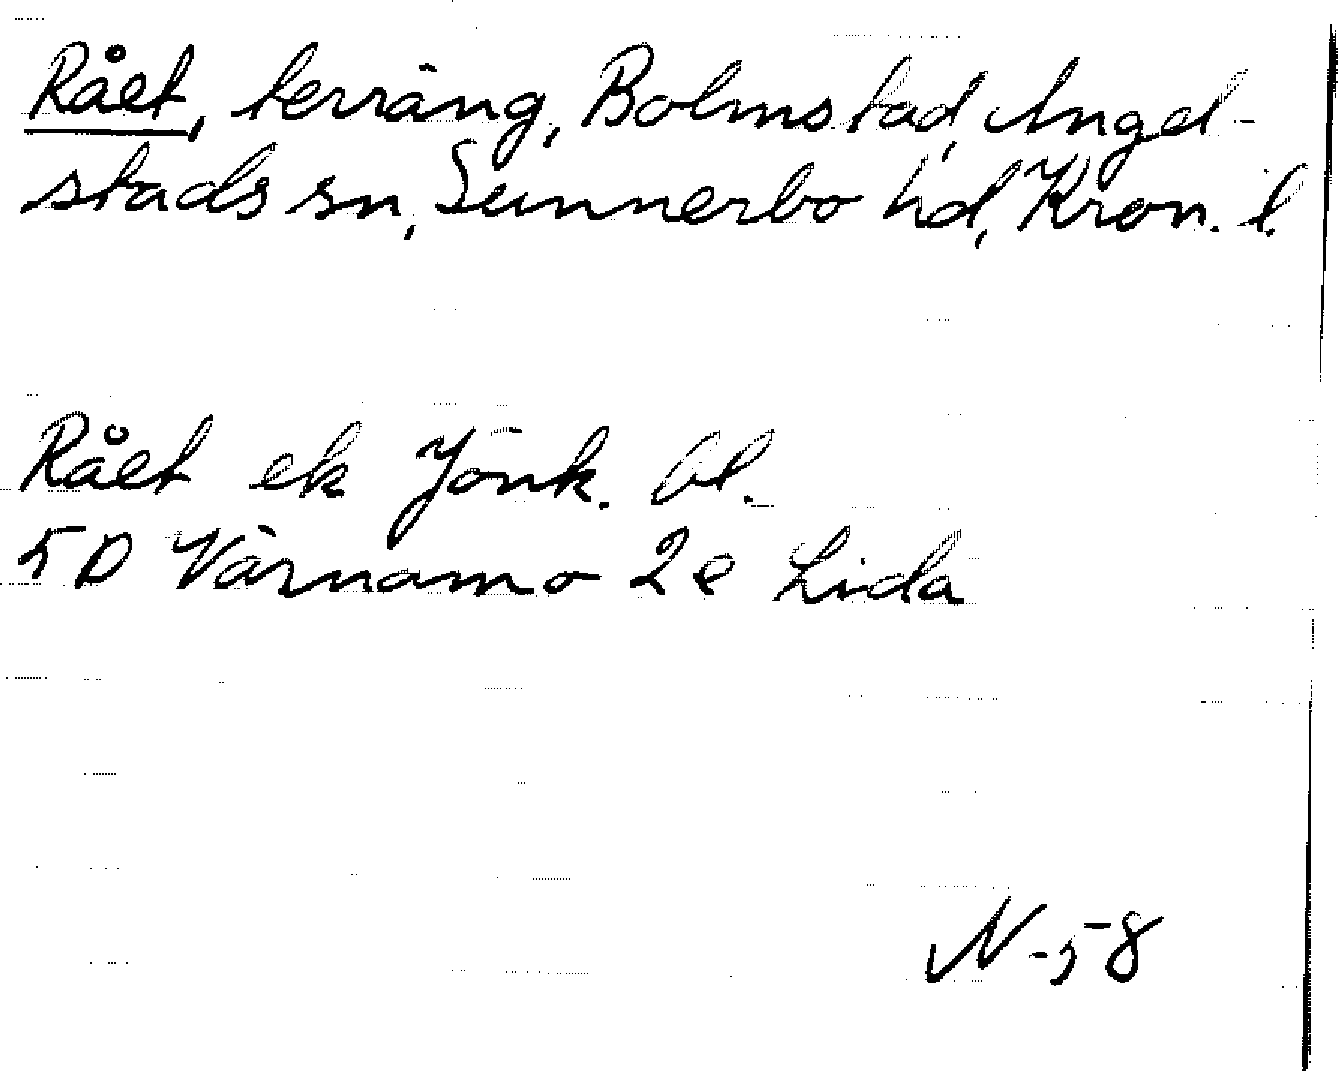 Rået, terräng, Bolmstad, Angel-
stads sn, Sunnerbo hd, Kron. l.
Rået ek Jönk. bl.
5D Värnamo 2e Lida
N-58